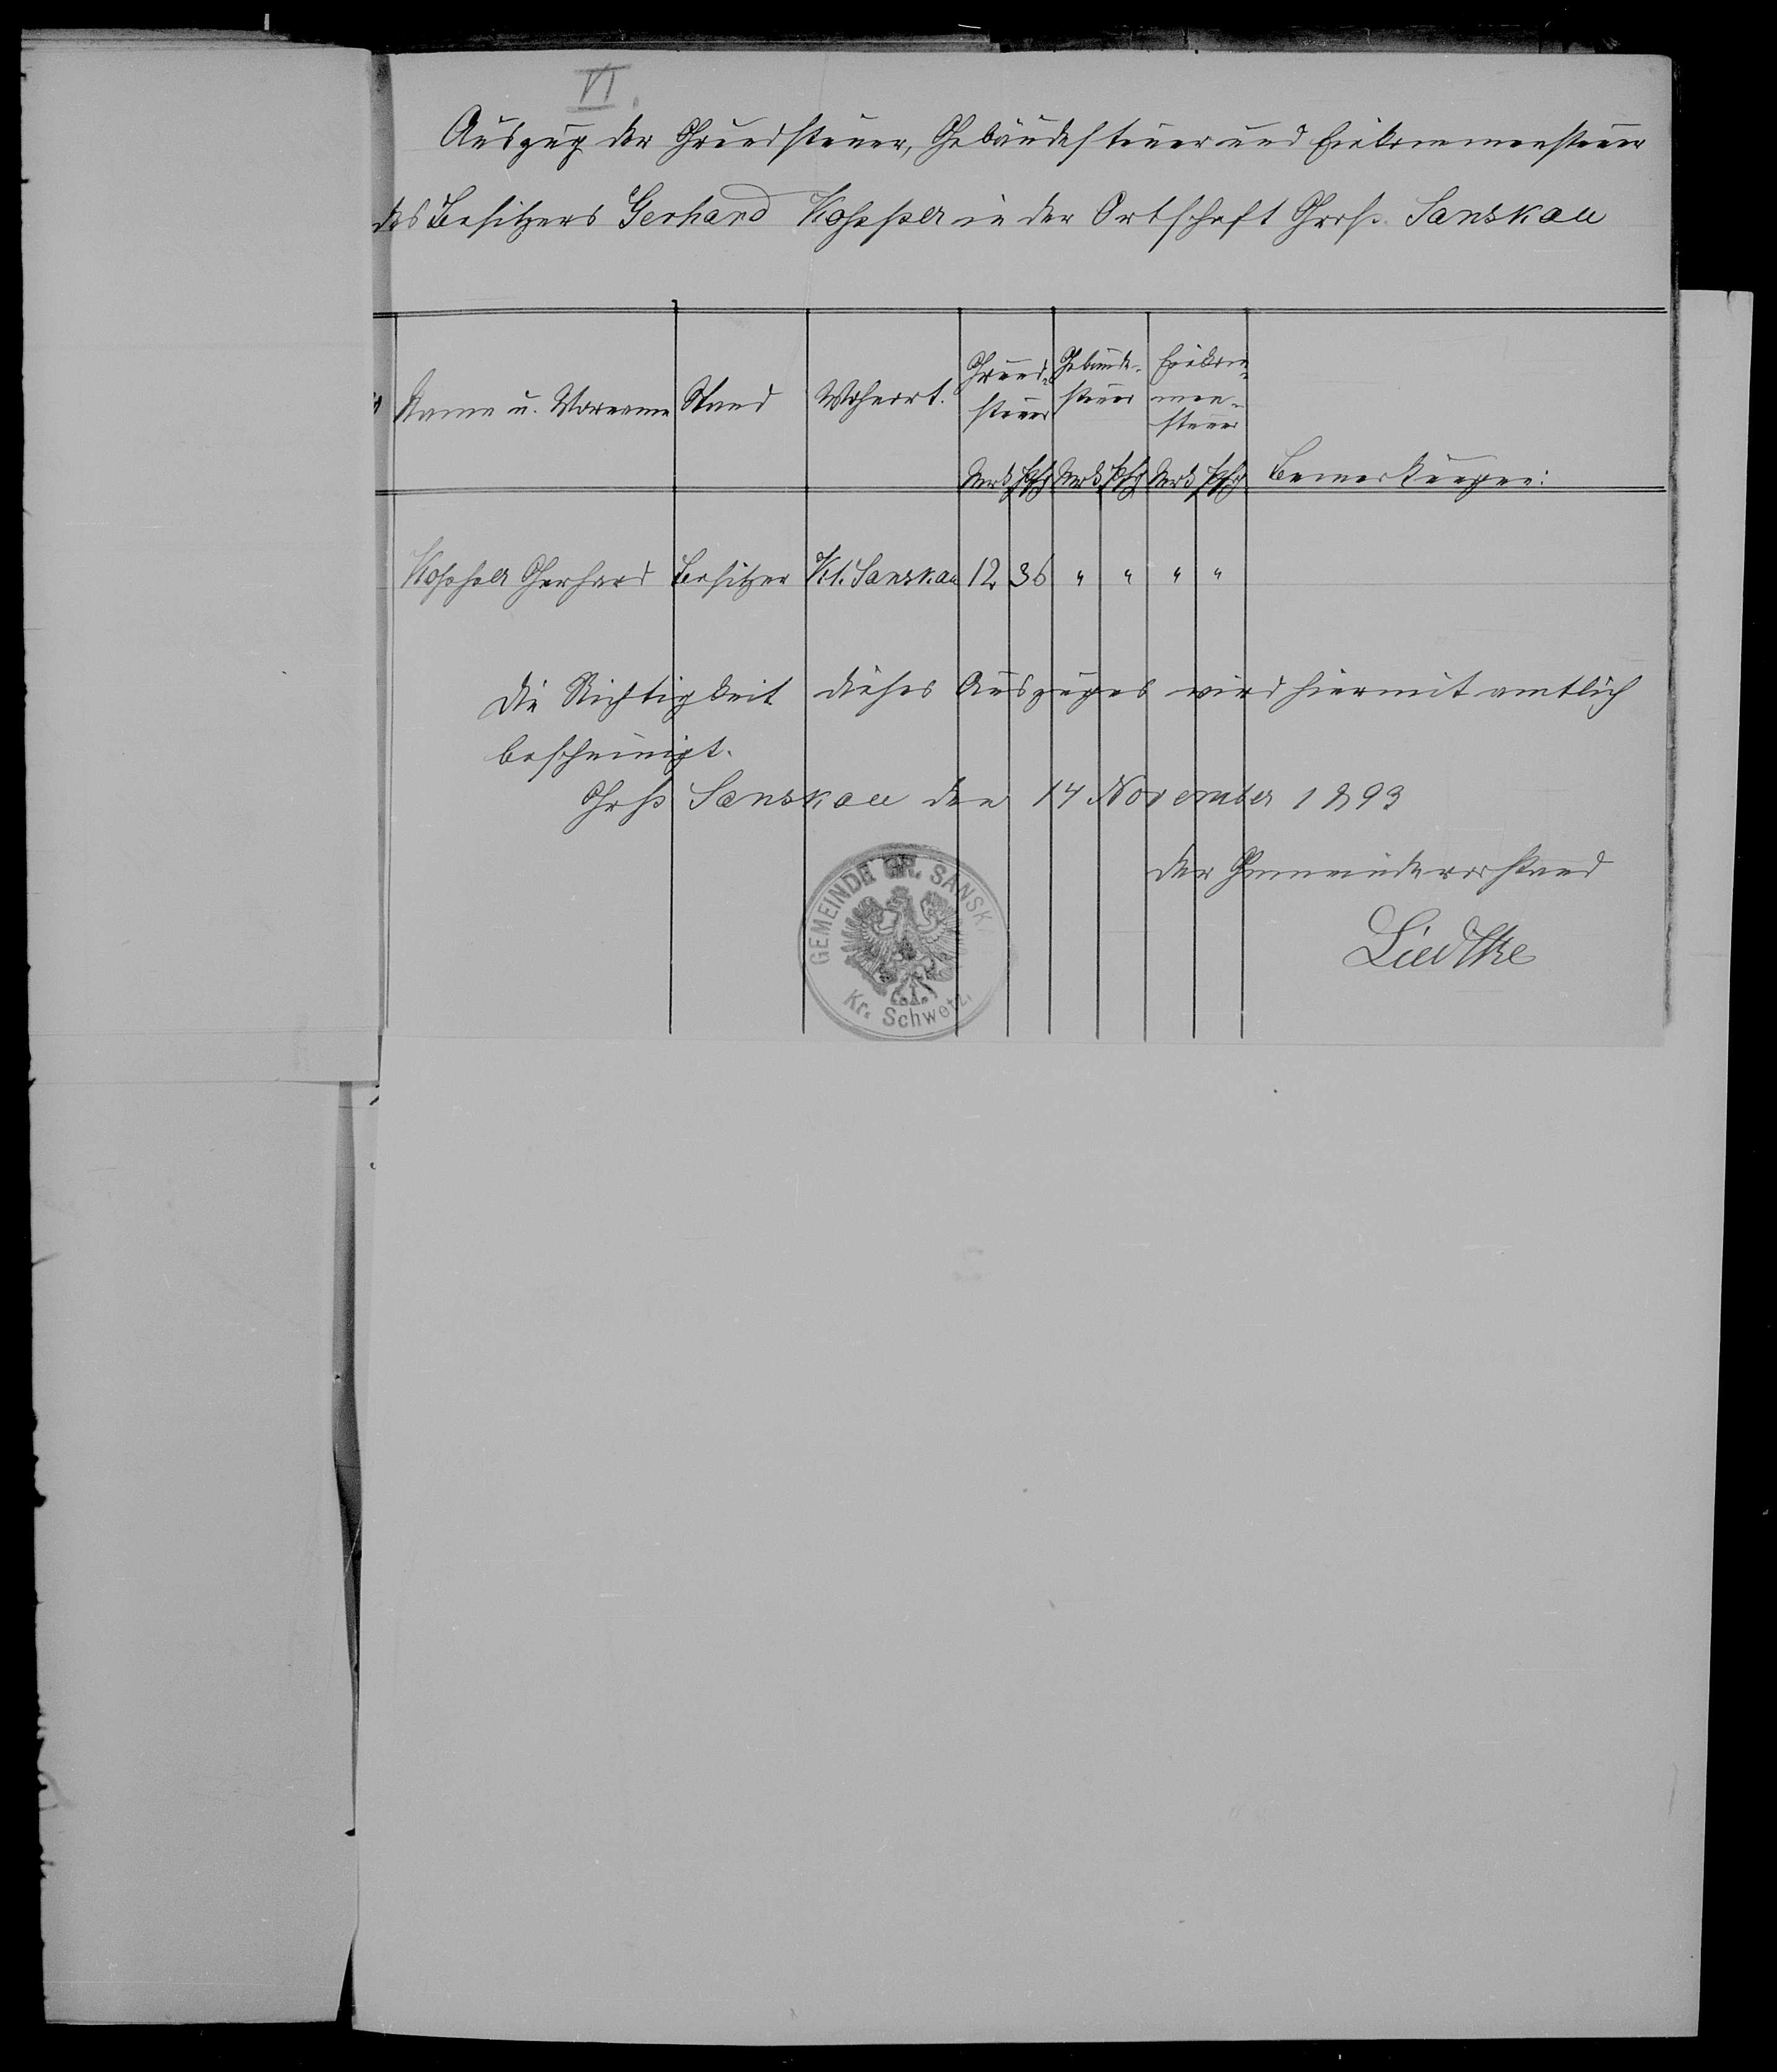 VI.
Auszug der Grundsteuer, Gebäudesteuer und Einkommensteuer
des Besitzers Gerhard Kopper in der Ortschaft Groß Sanskau
Name u. Vorname Stand Wohnort. Grund- steuer Gebäude- steuer Einkom- men- steuer
Mrk Pfg Mrk Pfg Mrk Pfg Bemerkungen:
Kopper Gerhard Besitzer Kl. Sanskau 12 36 " " " "
Die Richtigkeit dieses Auszuges wird hiermit amtlich
bescheinigt.
Groß Sanskau den 14 November 1893
Der Gemeindevorstand
Liedtke
GEMEINDE GR. SANSK
Kr. Schwetz.